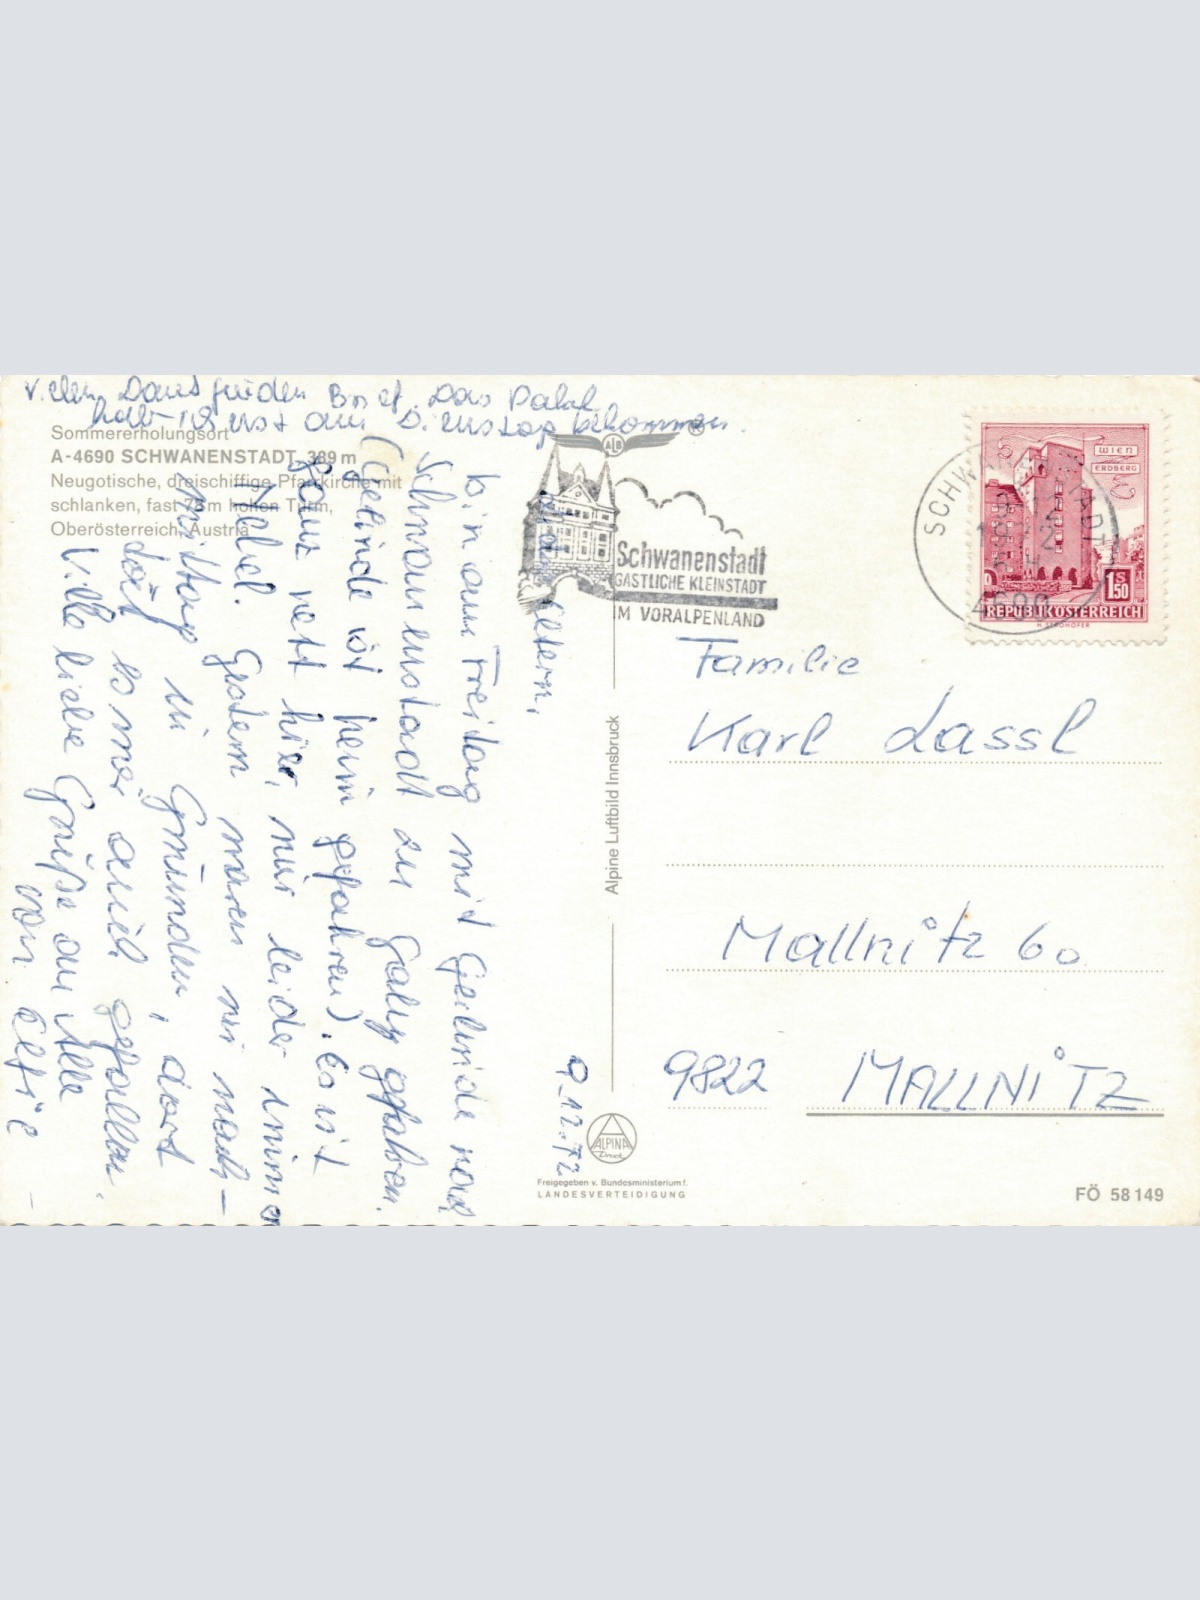 Vielen Dank für den Brief. Das Paket
hab ich erst am Dienstag bekommen.
Sommererholungsort
A-4690 SCHWANENSTADT, 389 m
Neugotische, dreischiffige Pfarrkirche mit
schlanken, fast 78 m hohen Turm,
Oberösterreich, Austria
Eltern,
bin am Freitag mit Gerlinde nach
Schwanenstadt zu Gaby gefahren.
(Gerlinde ist heim gefahren). Es ist
ganz nett hier, nur leider immer
Nebel. Gestern waren wir nach-
mittag in Gmunden, dort
hat es mir auch gefallen.
Viele liebe Grüße an Alle
von Elfie
9.12.72
ALB
®
Schwanenstadt
GASTLICHE KLEINSTADT
IM VORALPENLAND
4690
WIEN
ERDBERG
S
1.50
REPUBLIK ÖSTERREICH
Familie
Karl Lassl
Mallnitz 60
9822 MALLNITZ
Alpine Luftbild Innsbruck
ALPINA
Druck
Freigegeben v. Bundesministerium f.
LANDESVERTEIDIGUNG
FÖ 58 149